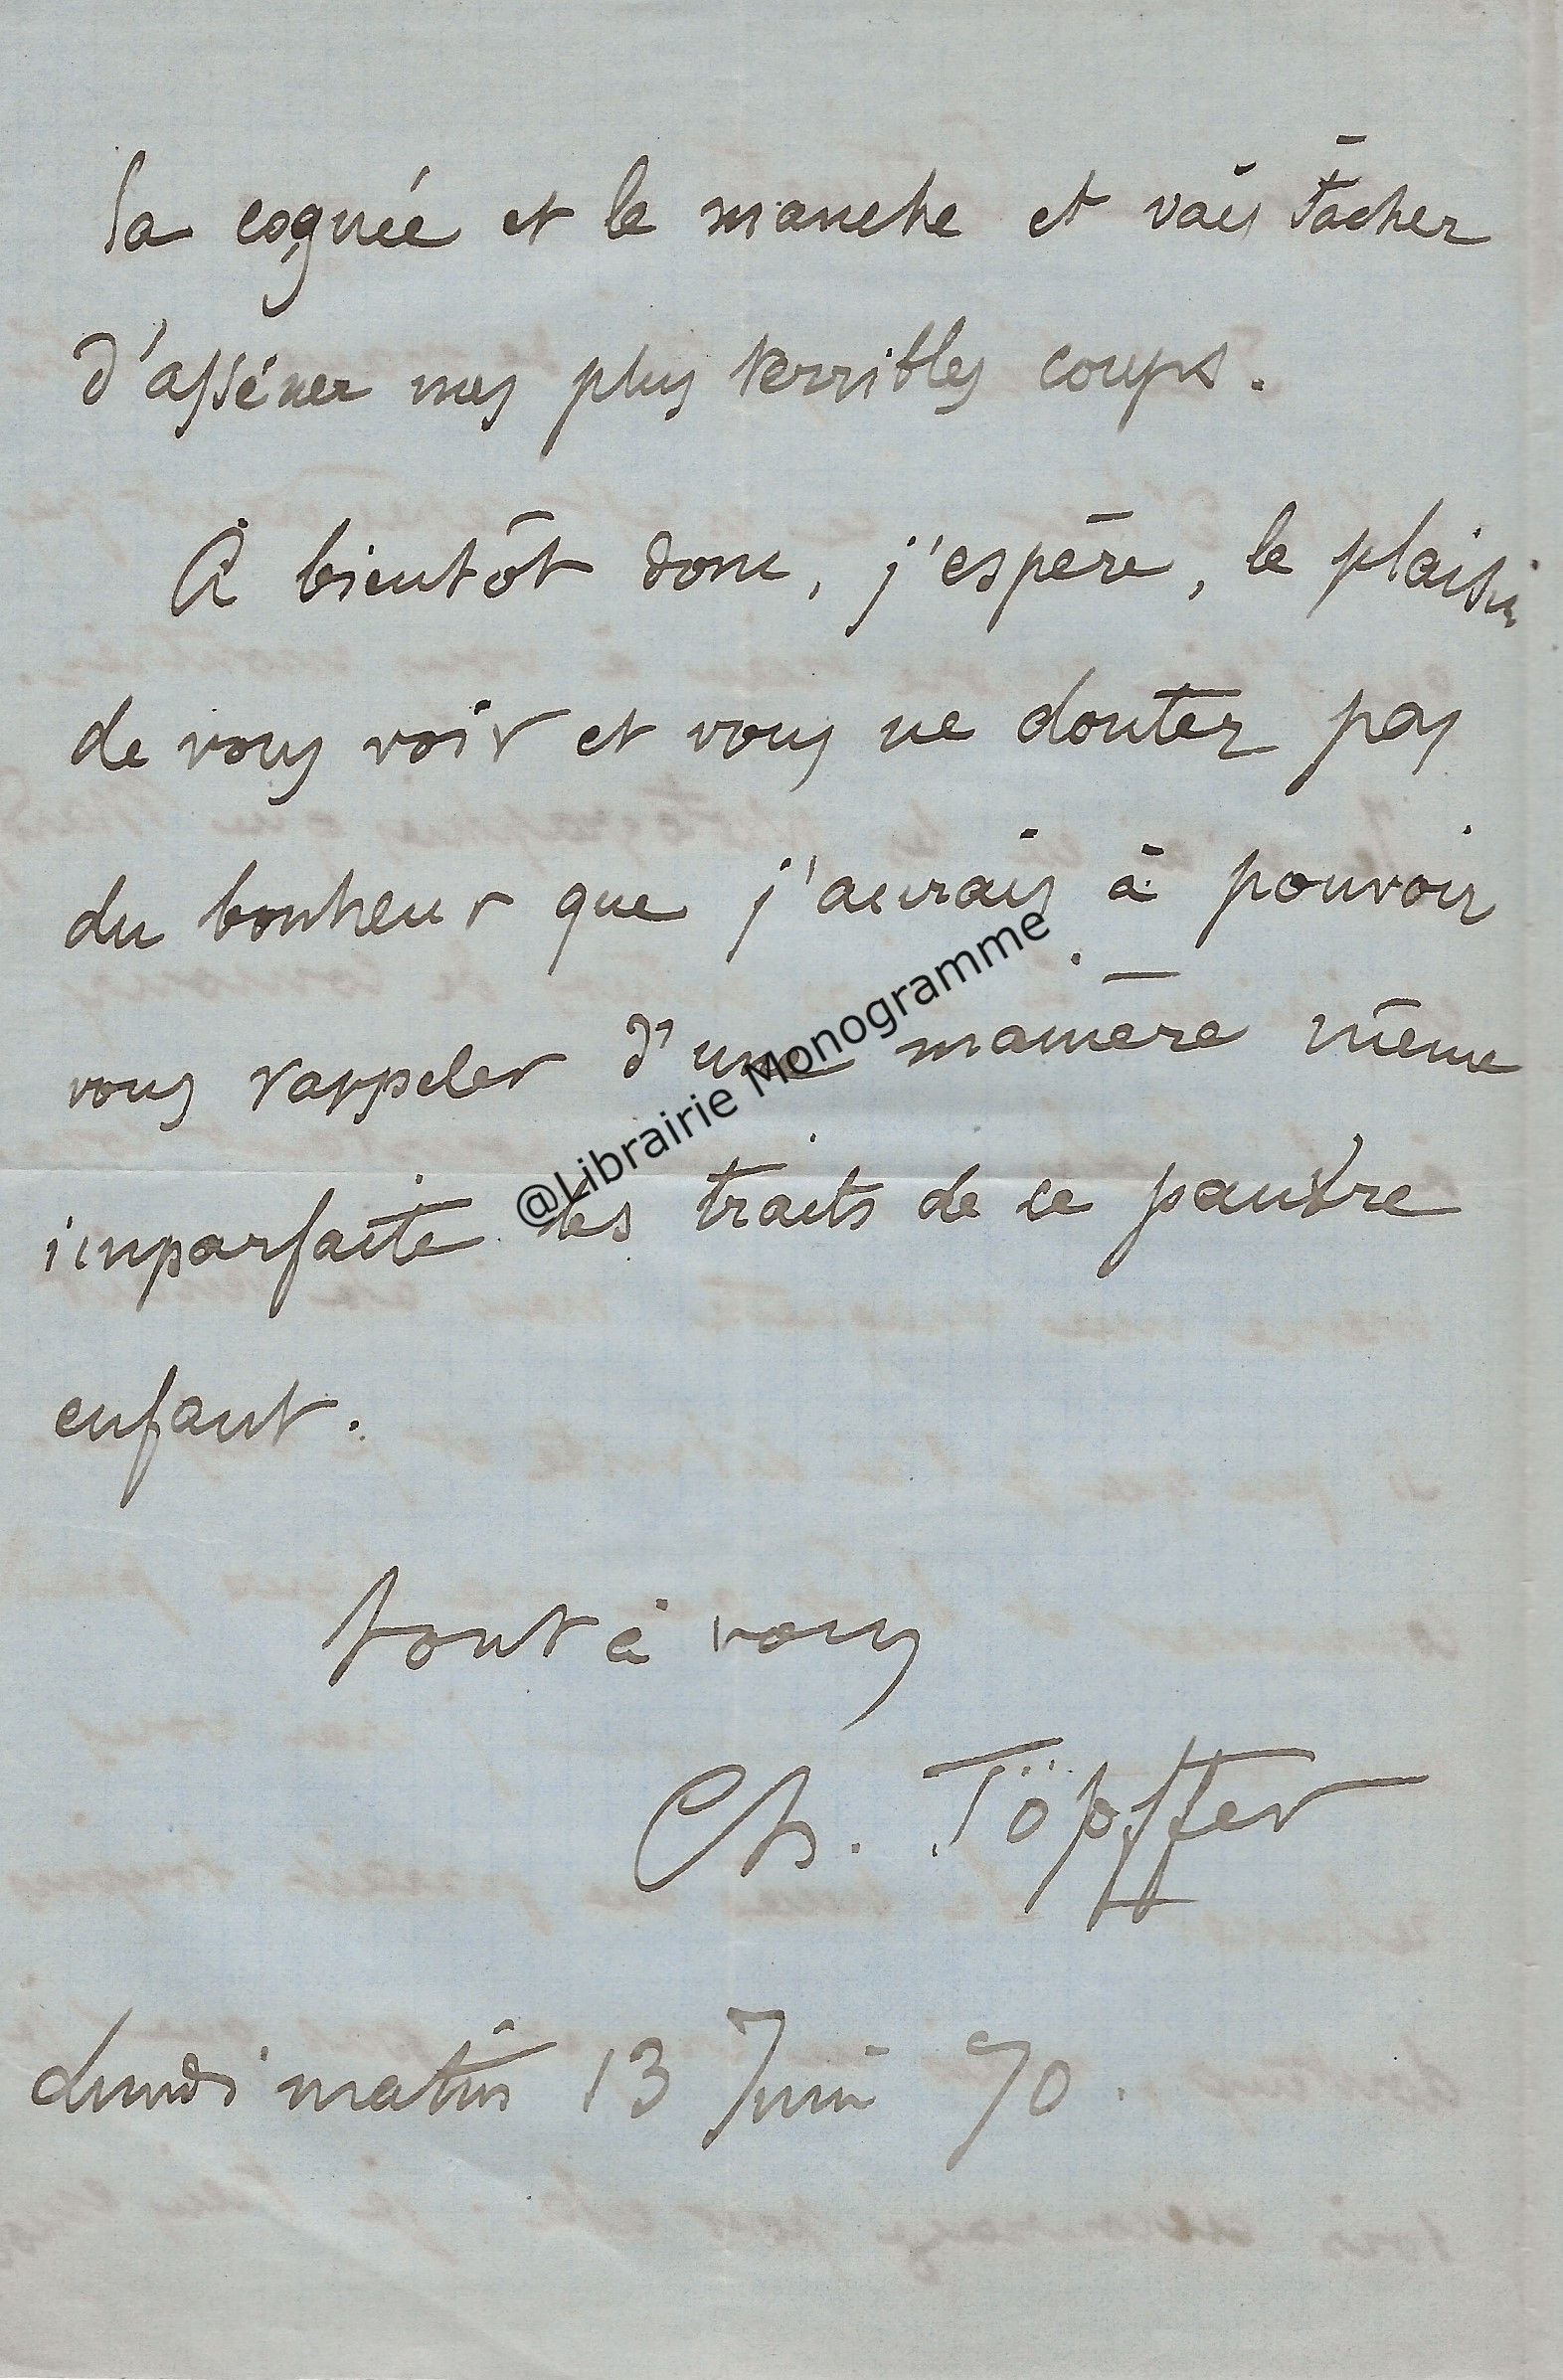 la cognée et le manche et vais tâcher
d'asséner mes plus terribles coups.
A bientôt donc, j'espère, le plaisir
de vous voir et vous ne doutez pas
du bonheur que j'aurais à pouvoir
vous rappeler d'une manière même
imparfaite les traits de ce pauvre
enfant.
tout à vous
Ch. Töpffer
lundi matin 13 Juin 70.
@Librairie Monogramme